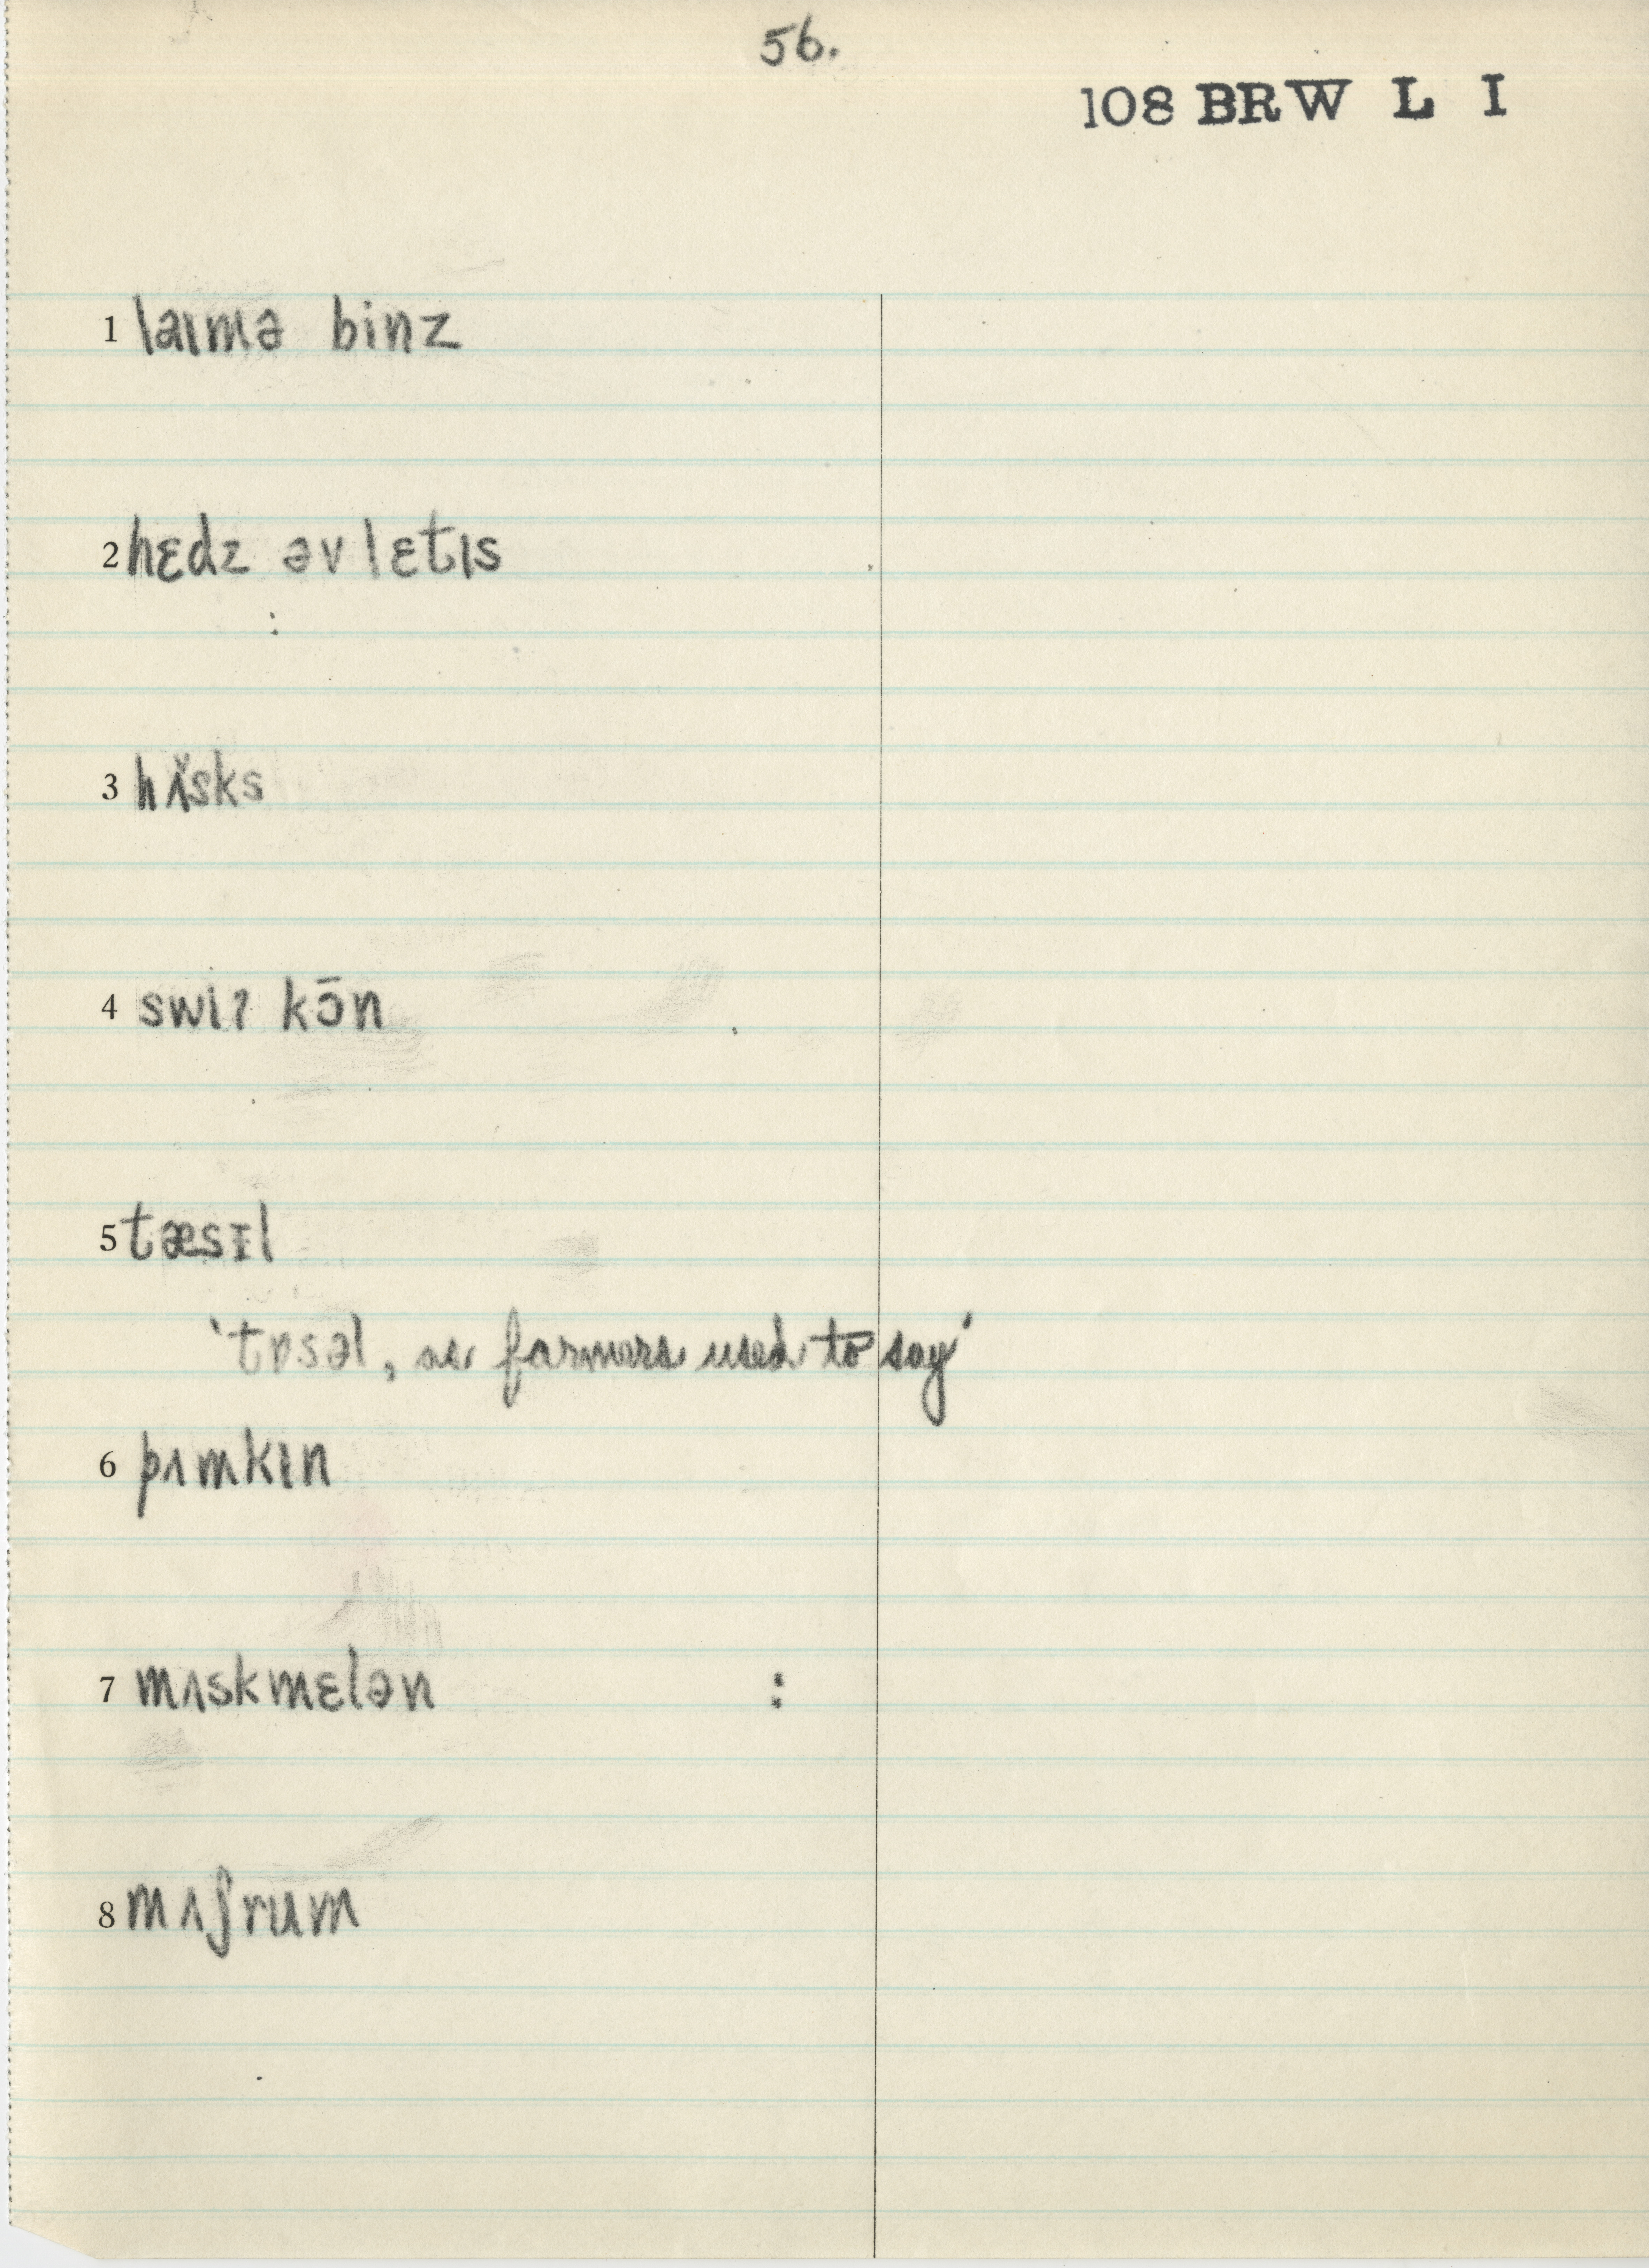 56.
108 BRW L I
1 laɪmə binz
2 hɛdz əv lɛtɪs
3 hʌ̌sks
4 swiʔ kɔ̄n
5 tæsɪl
'tɒsəl, as farmers used to say'
6 pʌmkɪn
7 mʌskmɛlən :
8 mʌʃrum